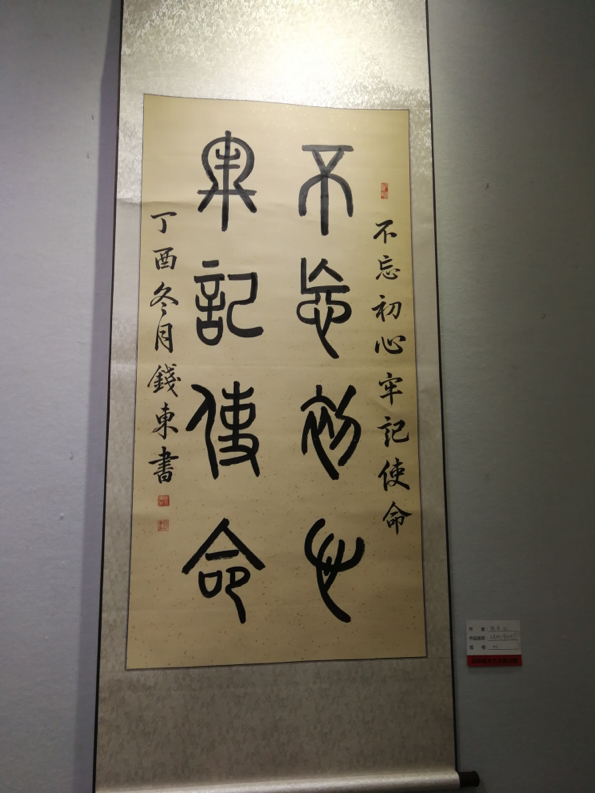 不忘初心牢記使命
不忘初心
牢記使命
丁酉冬月錢東書